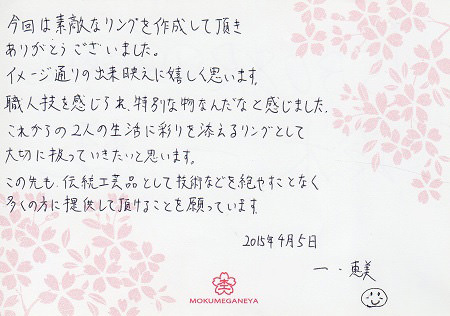 今回は素敵なリングを作成して頂き
ありがとうございました。
イメージ通りの出来映えに嬉しく思います。
職人技を感じられ、特別な物なんだなと感じました。
これからの2人の生活に彩りを添えるリングとして
大切に扱っていきたいと思います。
この先も、伝統工芸品として技術などを絶やすことなく
多くの方に提供して頂けることを願っています。
2015年4月5日
一・恵美
MOKUMEGANEYA